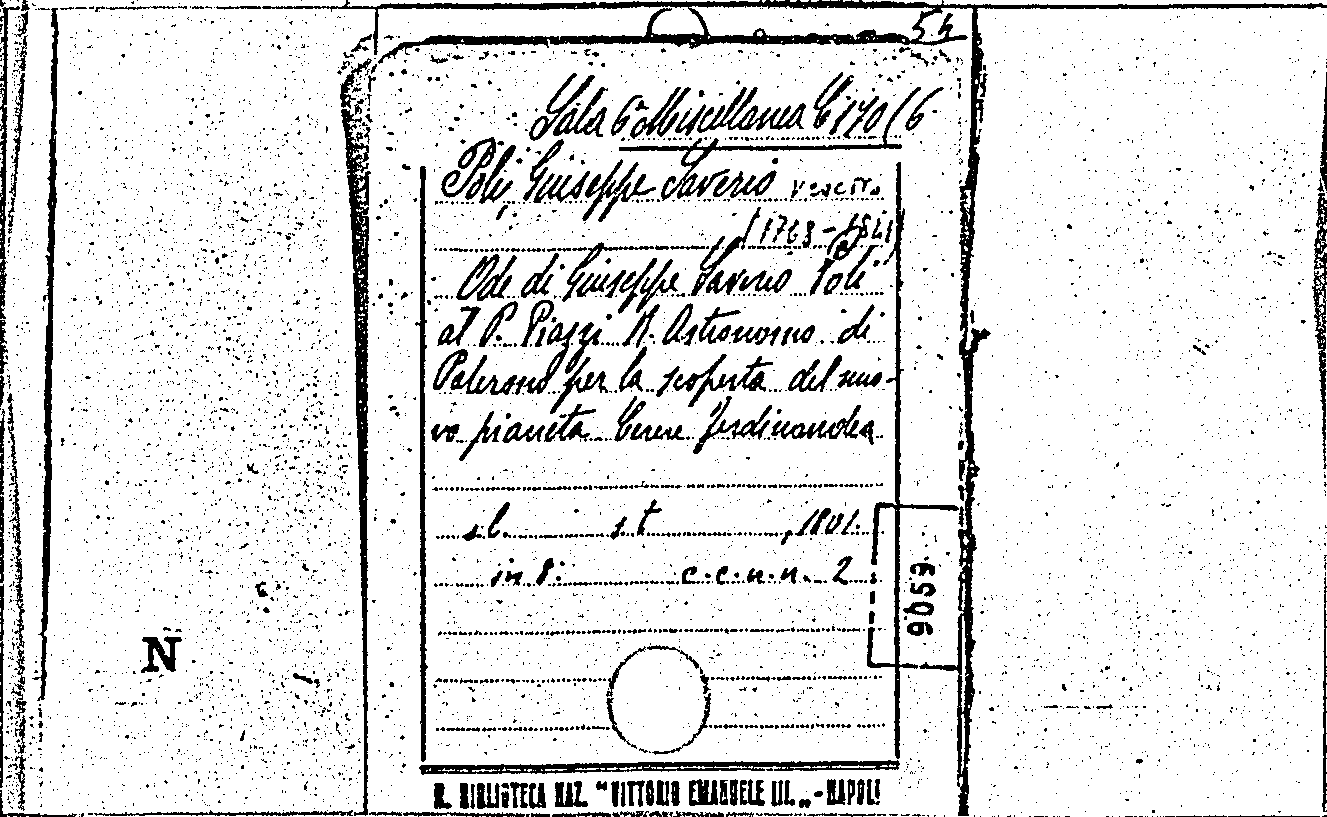 54
Sala 6ª Miscellanea C 170 (6
Poli, Giuseppe Saverio
Ode di Giuseppe Saverio Poli
al P. Piazzi R. Astronomo di
Palermo per la scoperta del nuo-
vo pianeta Cerere Ferdinandea
s.l. s.t , 1801.
in 8: c.c.n.n. 2
9059
N
R. BIBLIOTECA NAZ. "VITTORIO EMANUELE III. „ - NAPOLI